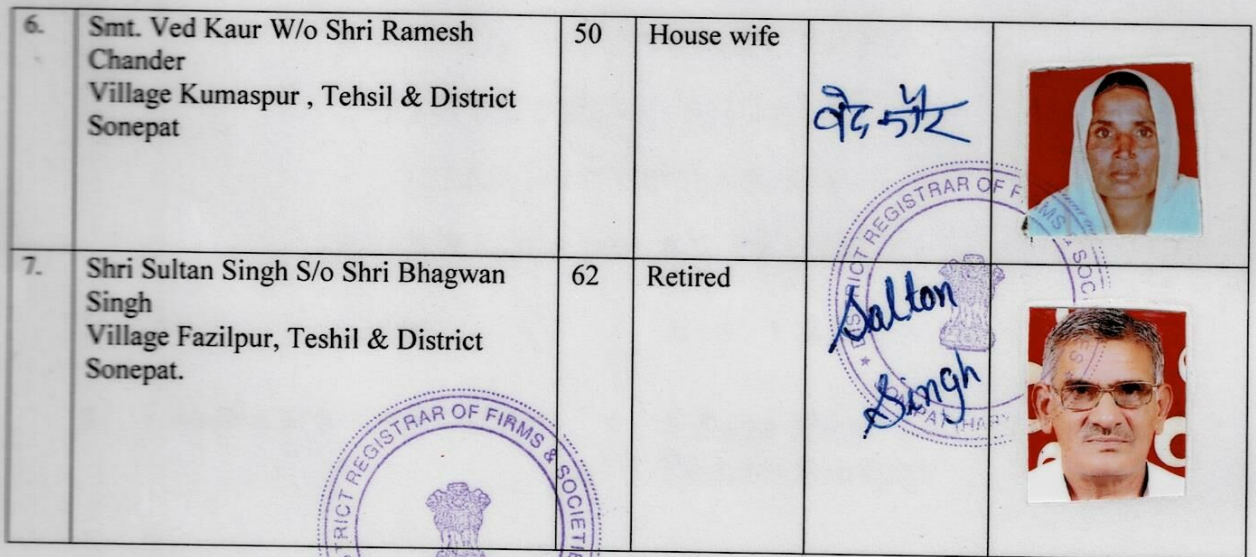 6.
Smt. Ved Kaur W/o Shri Ramesh
Chander
Village Kumaspur , Tehsil & District
Sonepat
50
House wife
वेद कौर
7.
Shri Sultan Singh S/o Shri Bhagwan
Singh
Village Fazilpur, Teshil & District
Sonepat.
62
Retired
Salton
Singh
DISTRICT REGISTRAR OF FIRMS & SOC
DISTRICT REGISTRAR OF FIRMS & SOCIETIE